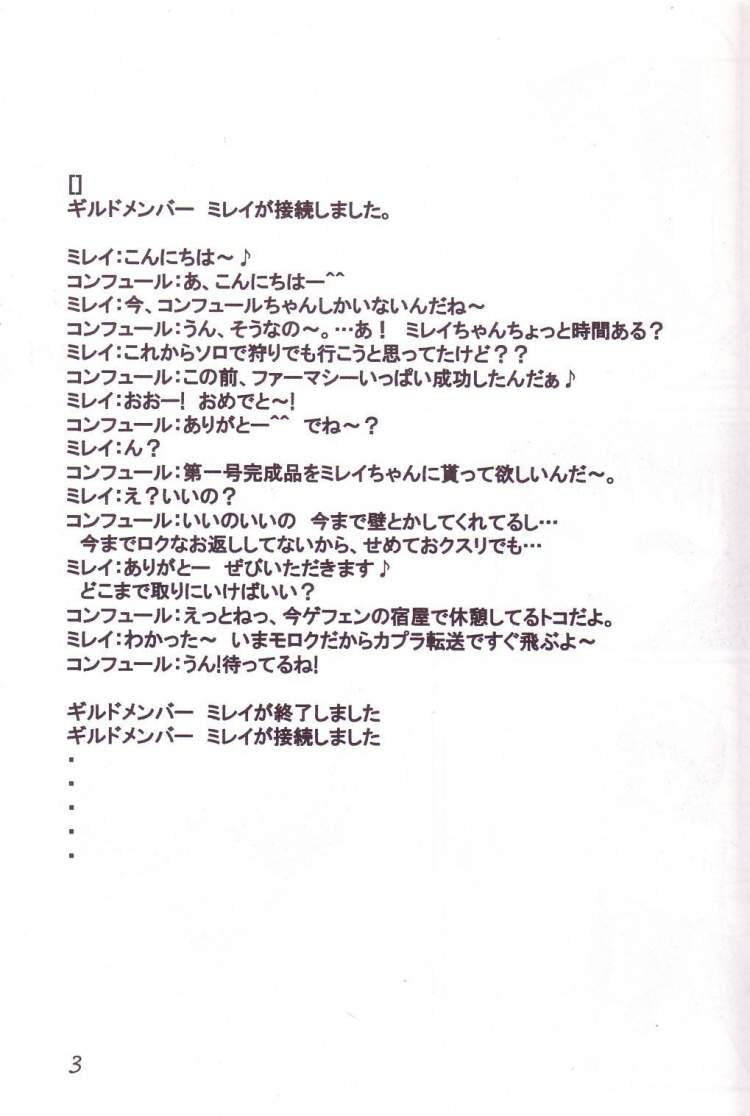 []
ギルドメンバー　ミレイが接続しました。
ミレイ：こんにちは～♪
コンフュール：あ、こんにちはー^^
ミレイ：今、コンフュールちゃんしかいないんだね～
コンフュール：うん、そうなの～。…あ！　ミレイちゃんちょっと時間ある？
ミレイ：これからソロで狩りでも行こうと思ってたけど？？
コンフュール：この前、ファーマシーいっぱい成功したんだぁ♪
ミレイ：おおー！ おめでと～！
コンフュール：ありがとー^^　でね～？
ミレイ：ん？
コンフュール：第一号完成品をミレイちゃんに貰って欲しいんだ～。
ミレイ：え？いいの？
コンフュール：いいのいいの　今まで壁とかしてくれてるし…
今までロクなお返ししてないから、せめておクスリでも…
ミレイ：ありがとー　ぜひいただきます♪
どこまで取りにいけばいい？
コンフュール：えっとねっ、今ゲフェンの宿屋で休憩してるトコだよ。
ミレイ：わかった～　いまモロクだからカプラ転送ですぐ飛ぶよ～
コンフュール：うん！待ってるね！
ギルドメンバー　ミレイが終了しました
ギルドメンバー　ミレイが接続しました
・
・
・
・
・
3